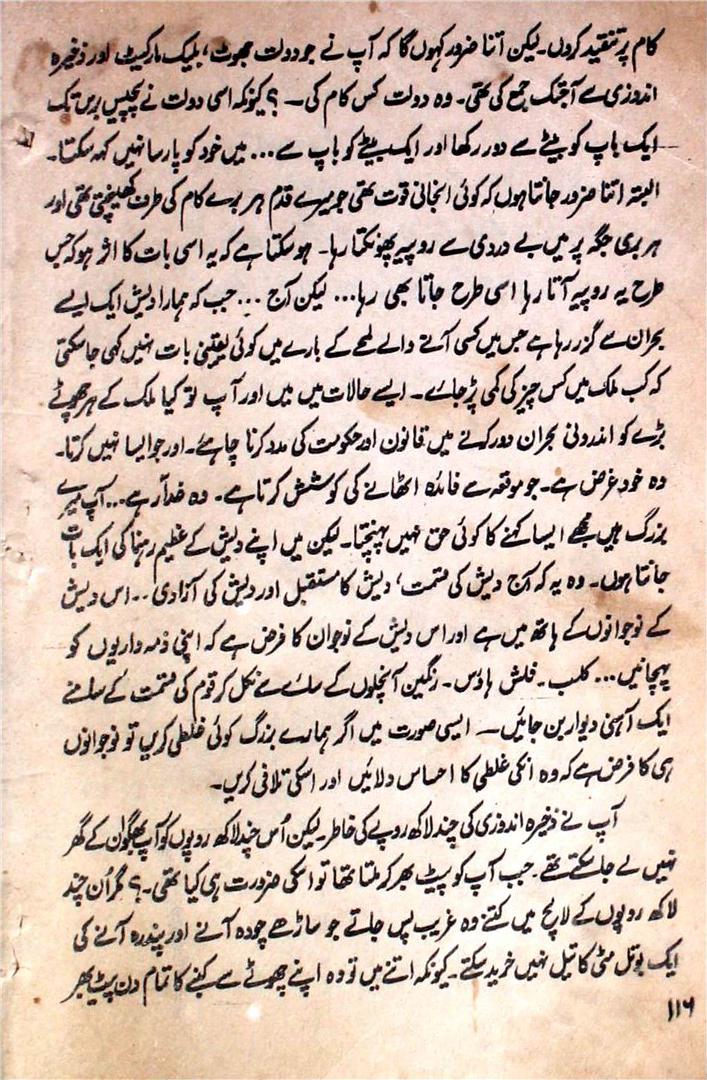 کام پر تنقید کروں۔ لیکن اتنا ضرور کہوں گا کہ آپ نے جو دولت جھوٹ، بلیک مارکیٹ اور ذخیرہ
اندوزی سے آجتک جمع کی تھی۔ وہ دولت کس کام کی۔ ؟ کیونکہ اسی دولت نے پچیس برس تک
ایک باپ کو بیٹے سے دور رکھا اور ایک بیٹے کو باپ سے... میں خود کو پارسا نہیں کہہ سکتا۔
البتہ اتنا ضرور جانتا ہوں کہ کوئی انجانی قوت تھی جو میرے قدم ہر برے کام کی طرف کھینچتی تھی اور
ہر بری جگہ پر میں بے دردی سے روپیہ پھونکتا رہا۔ ہو سکتا ہے کہ یہ اسی بات کا اثر ہو کہ جس
طرح یہ روپیہ آتا رہا اسی طرح جاتا بھی رہا... لیکن آج ... جب کہ ہمارا دیش ایک ایسے
بحران سے گزر رہا ہے جس میں کسی آنے والے لمحے کے بارے میں کوئی یقینی بات نہیں کہی جا سکتی
کہ کب ملک میں کس چیز کی کمی پڑ جائے۔ ایسے حالات میں میں اور آپ تو کیا ملک کے ہر چھوٹے
بڑے کو اندرونی بحران دور کرنے میں قانون اور حکومت کی مدد کرنا چاہئے۔ اور جو ایسا نہیں کرتا۔
وہ خود غرض ہے۔ جو موقعہ سے فائدہ اٹھانے کی کوشش کرتا ہے۔ وہ غدار ہے... آپ میرے
بزرگ ہیں مجھے ایسا کہنے کا کوئی حق نہیں پہنچتا۔ لیکن میں اپنے دیش کے عظیم رہنما کی ایک بات
جانتا ہوں۔ وہ یہ کہ آج دیش کی قسمت، دیش کا مستقبل اور دیش کی آزادی .. اس دیش
کے نوجوانوں کے ہاتھ میں ہے اور اس دیش کے نوجوان کا فرض ہے کہ اپنی ذمہ داریوں کو
پہچانیں... کلب۔ فلش ہاؤس۔ رنگین آنچلوں کے سائے سے نکل کر قوم کی قسمت کے سامنے
ایک آہنی دیوار بن جائیں۔ ایسی صورت میں اگر ہمارے بزرگ کوئی غلطی کریں تو نوجوانوں
ہی کا فرض ہے کہ وہ انکی غلطی کا احساس دلائیں اور اسکی تلافی کریں۔
آپ نے ذخیرہ اندوزی کی چند لاکھ روپے کی خاطر لیکن اُس چند لاکھ روپوں کو آپ بھگوان کے گھر
نہیں لے جا سکتے تھے۔ جب آپ کو پیٹ بھر کر ملتا تھا تو اسکی ضرورت ہی کیا تھی۔ ؟ مگر اُن چند
لاکھ روپوں کے لالچ میں کتنے وہ غریب پس جاتے جو ساڑھے چودہ آنے اور پندرہ آنے کی
ایک بوتل مٹی کا تیل نہیں خرید سکتے۔ کیونکہ اتنے میں تو وہ اپنے چھوٹے سے کنبے کا تمام دن پیٹ بھر
۱۱۶